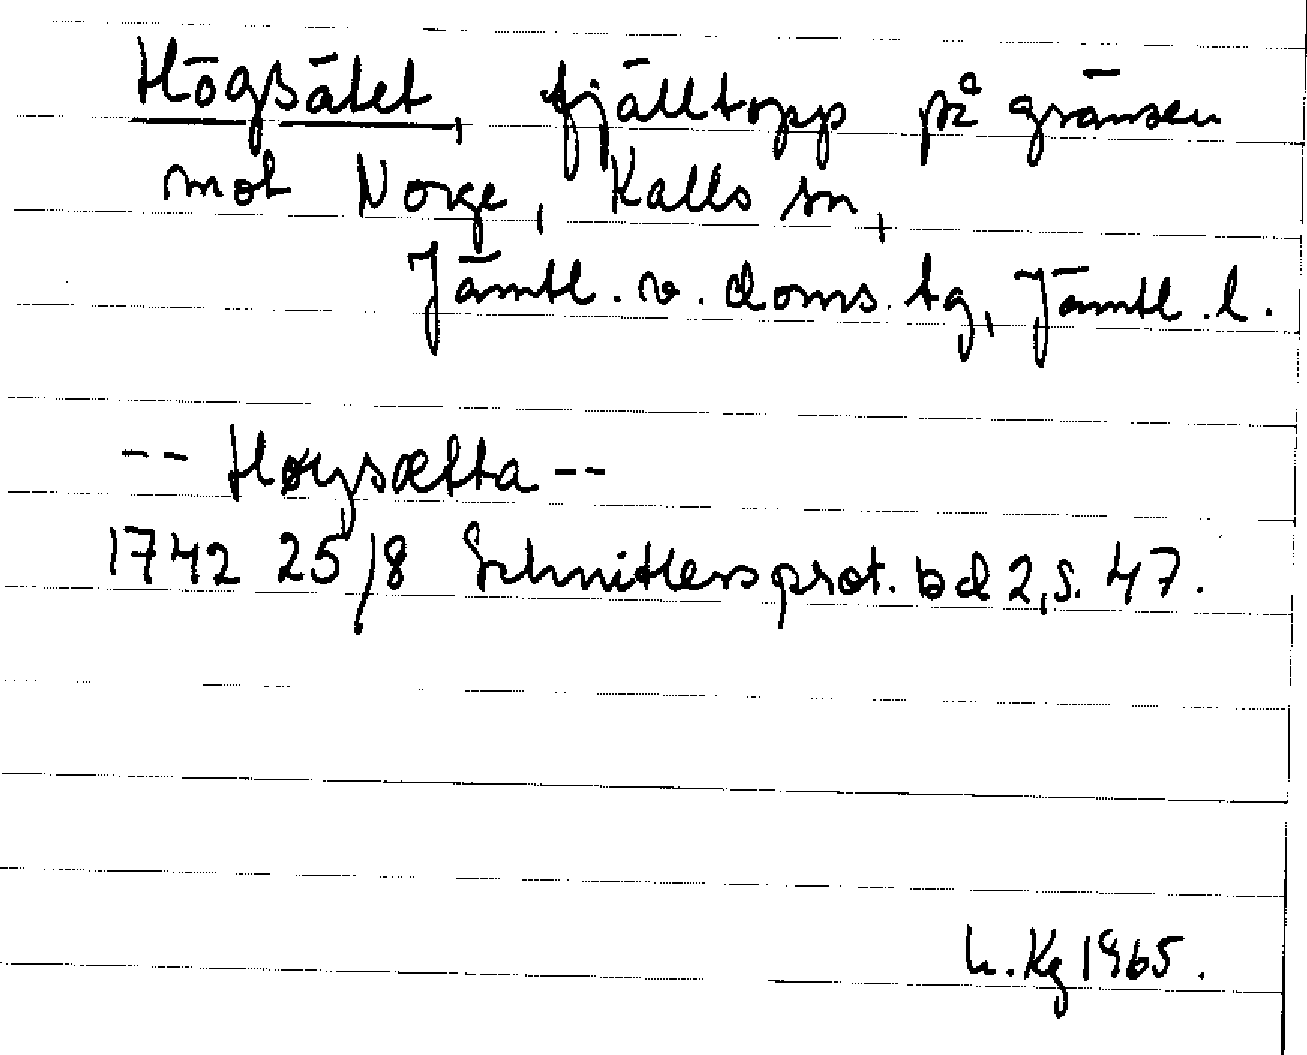 Högsätet, fjälltopp på gränsen
mot Norge, Kalls sn,
Jämtl. v. doms. tg, Jämtl. l.
-- Høysætta --
1742 25/8 Schnitlers prot. bd 2, s. 47.
L. Kg 1965.